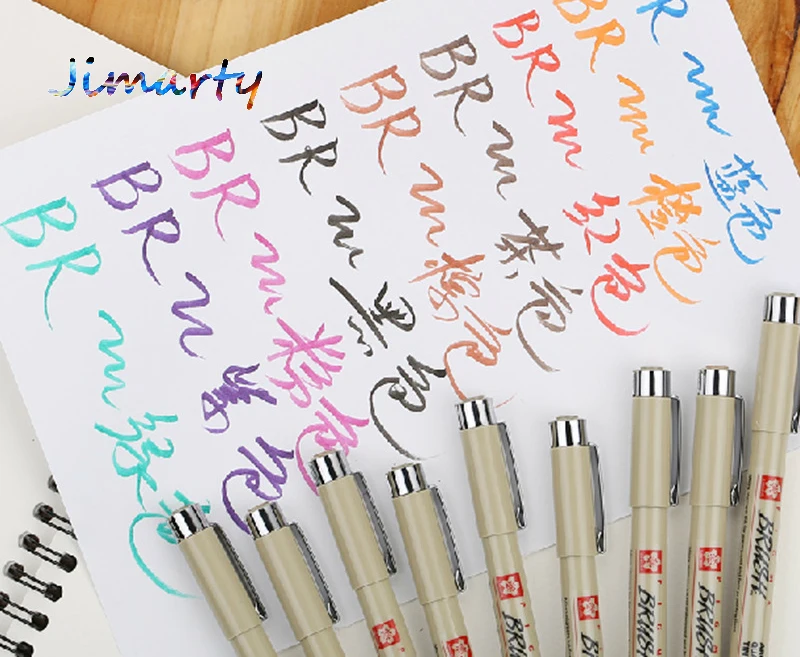 Jimarty
BR
绿色
BR
紫色
BR
粉色
BR
黑色
BR
色
BR
茶色
BR
红色
BR
橙色
R
蓝色
BRUSH
BRUSH
BRUSH